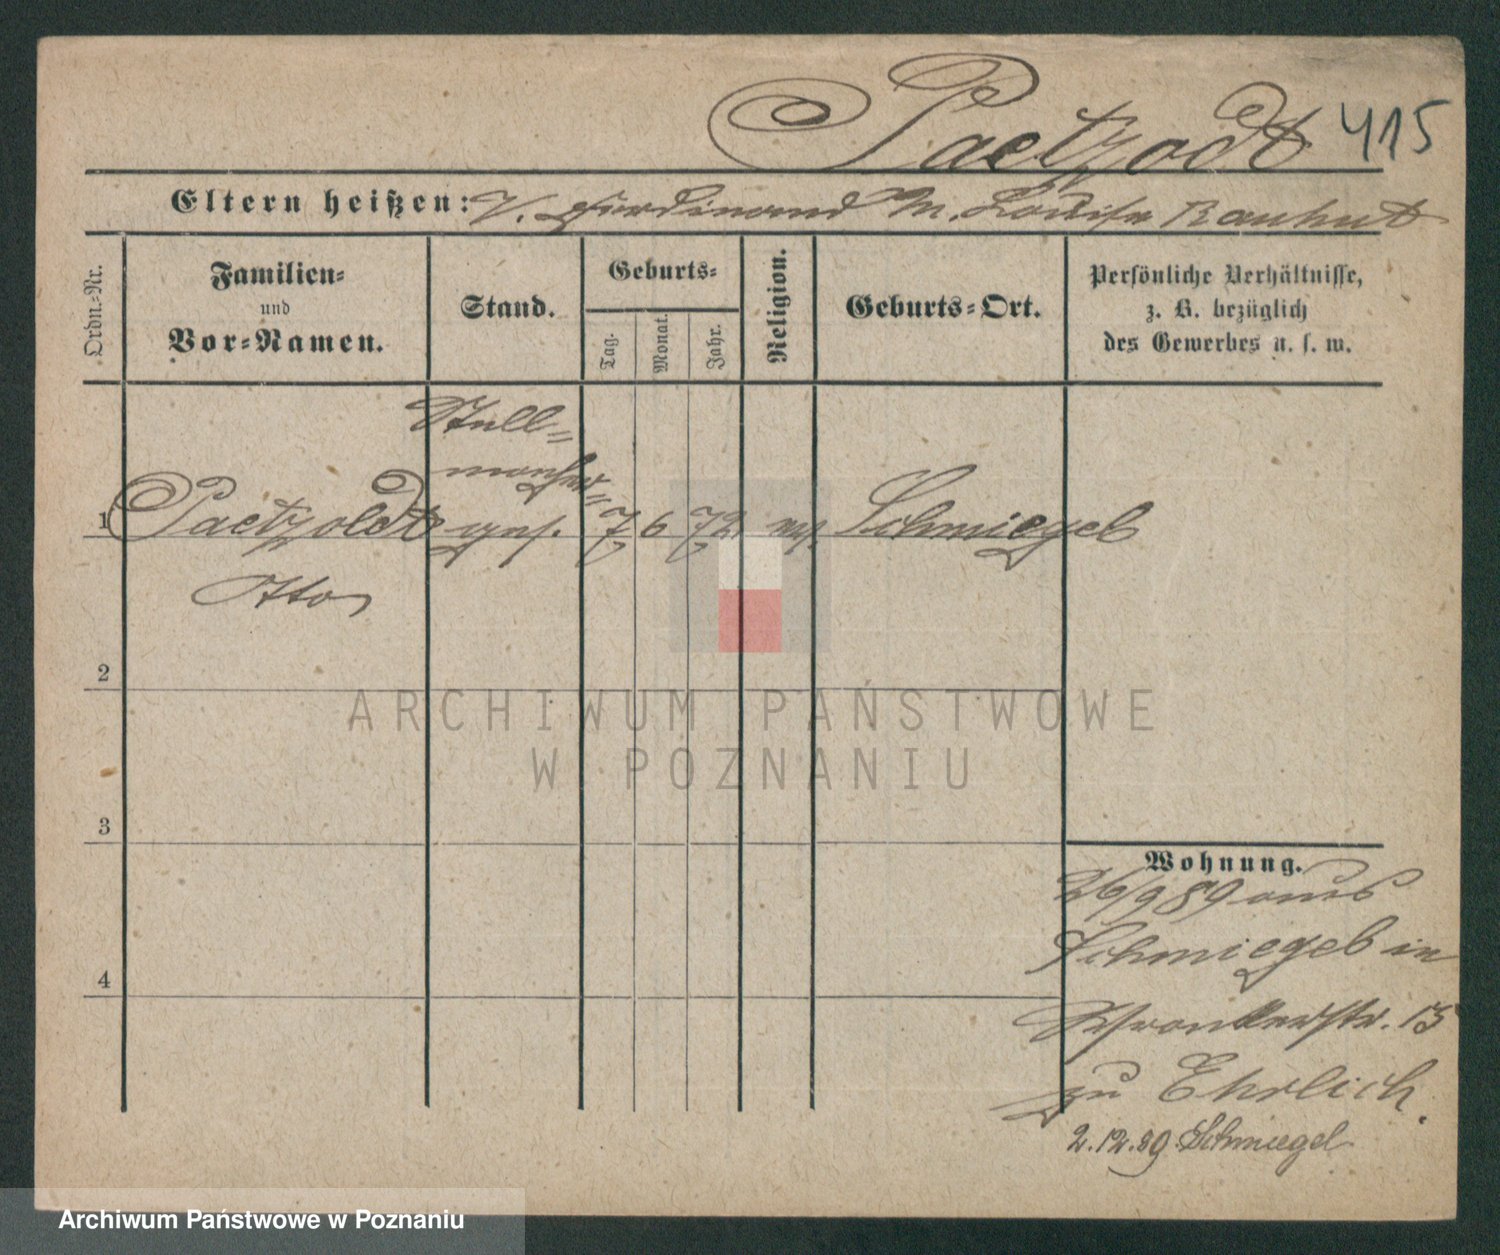 Paetzodt 415
Eltern heißen: V. Ferdinand M. Louise Rauhut
Ordn.-Nr.
Familien-
und
Vor-Namen.
Stand.
Geburts-
Tag.
Monat.
Jahr.
Religion.
Geburts-Ort.
Persönliche Verhältnisse,
z. B. bezüglich
des Gewerbes u. s. w.
Stell-
macher-
1 Paetzoldt ges. 7 6 72 ev. Schmiegel
Otto
2
3
4
Wohnung.
26/9 89 aus
Schmiegel in
Schronkerstr. 15
zu Ehrlich.
2.12.89 Schmiegel
ARCHIWUM PAŃSTWOWE
W POZNANIU
Archiwum Państwowe w Poznaniu